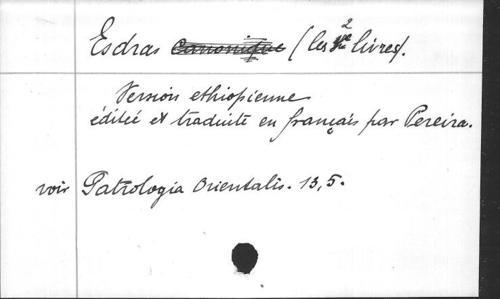 Esdras canonique (les 2 livres).
Version ethiopienne
éditée et traduite en français par Pereira.
voir Patrologia Orientalis. 13,5.